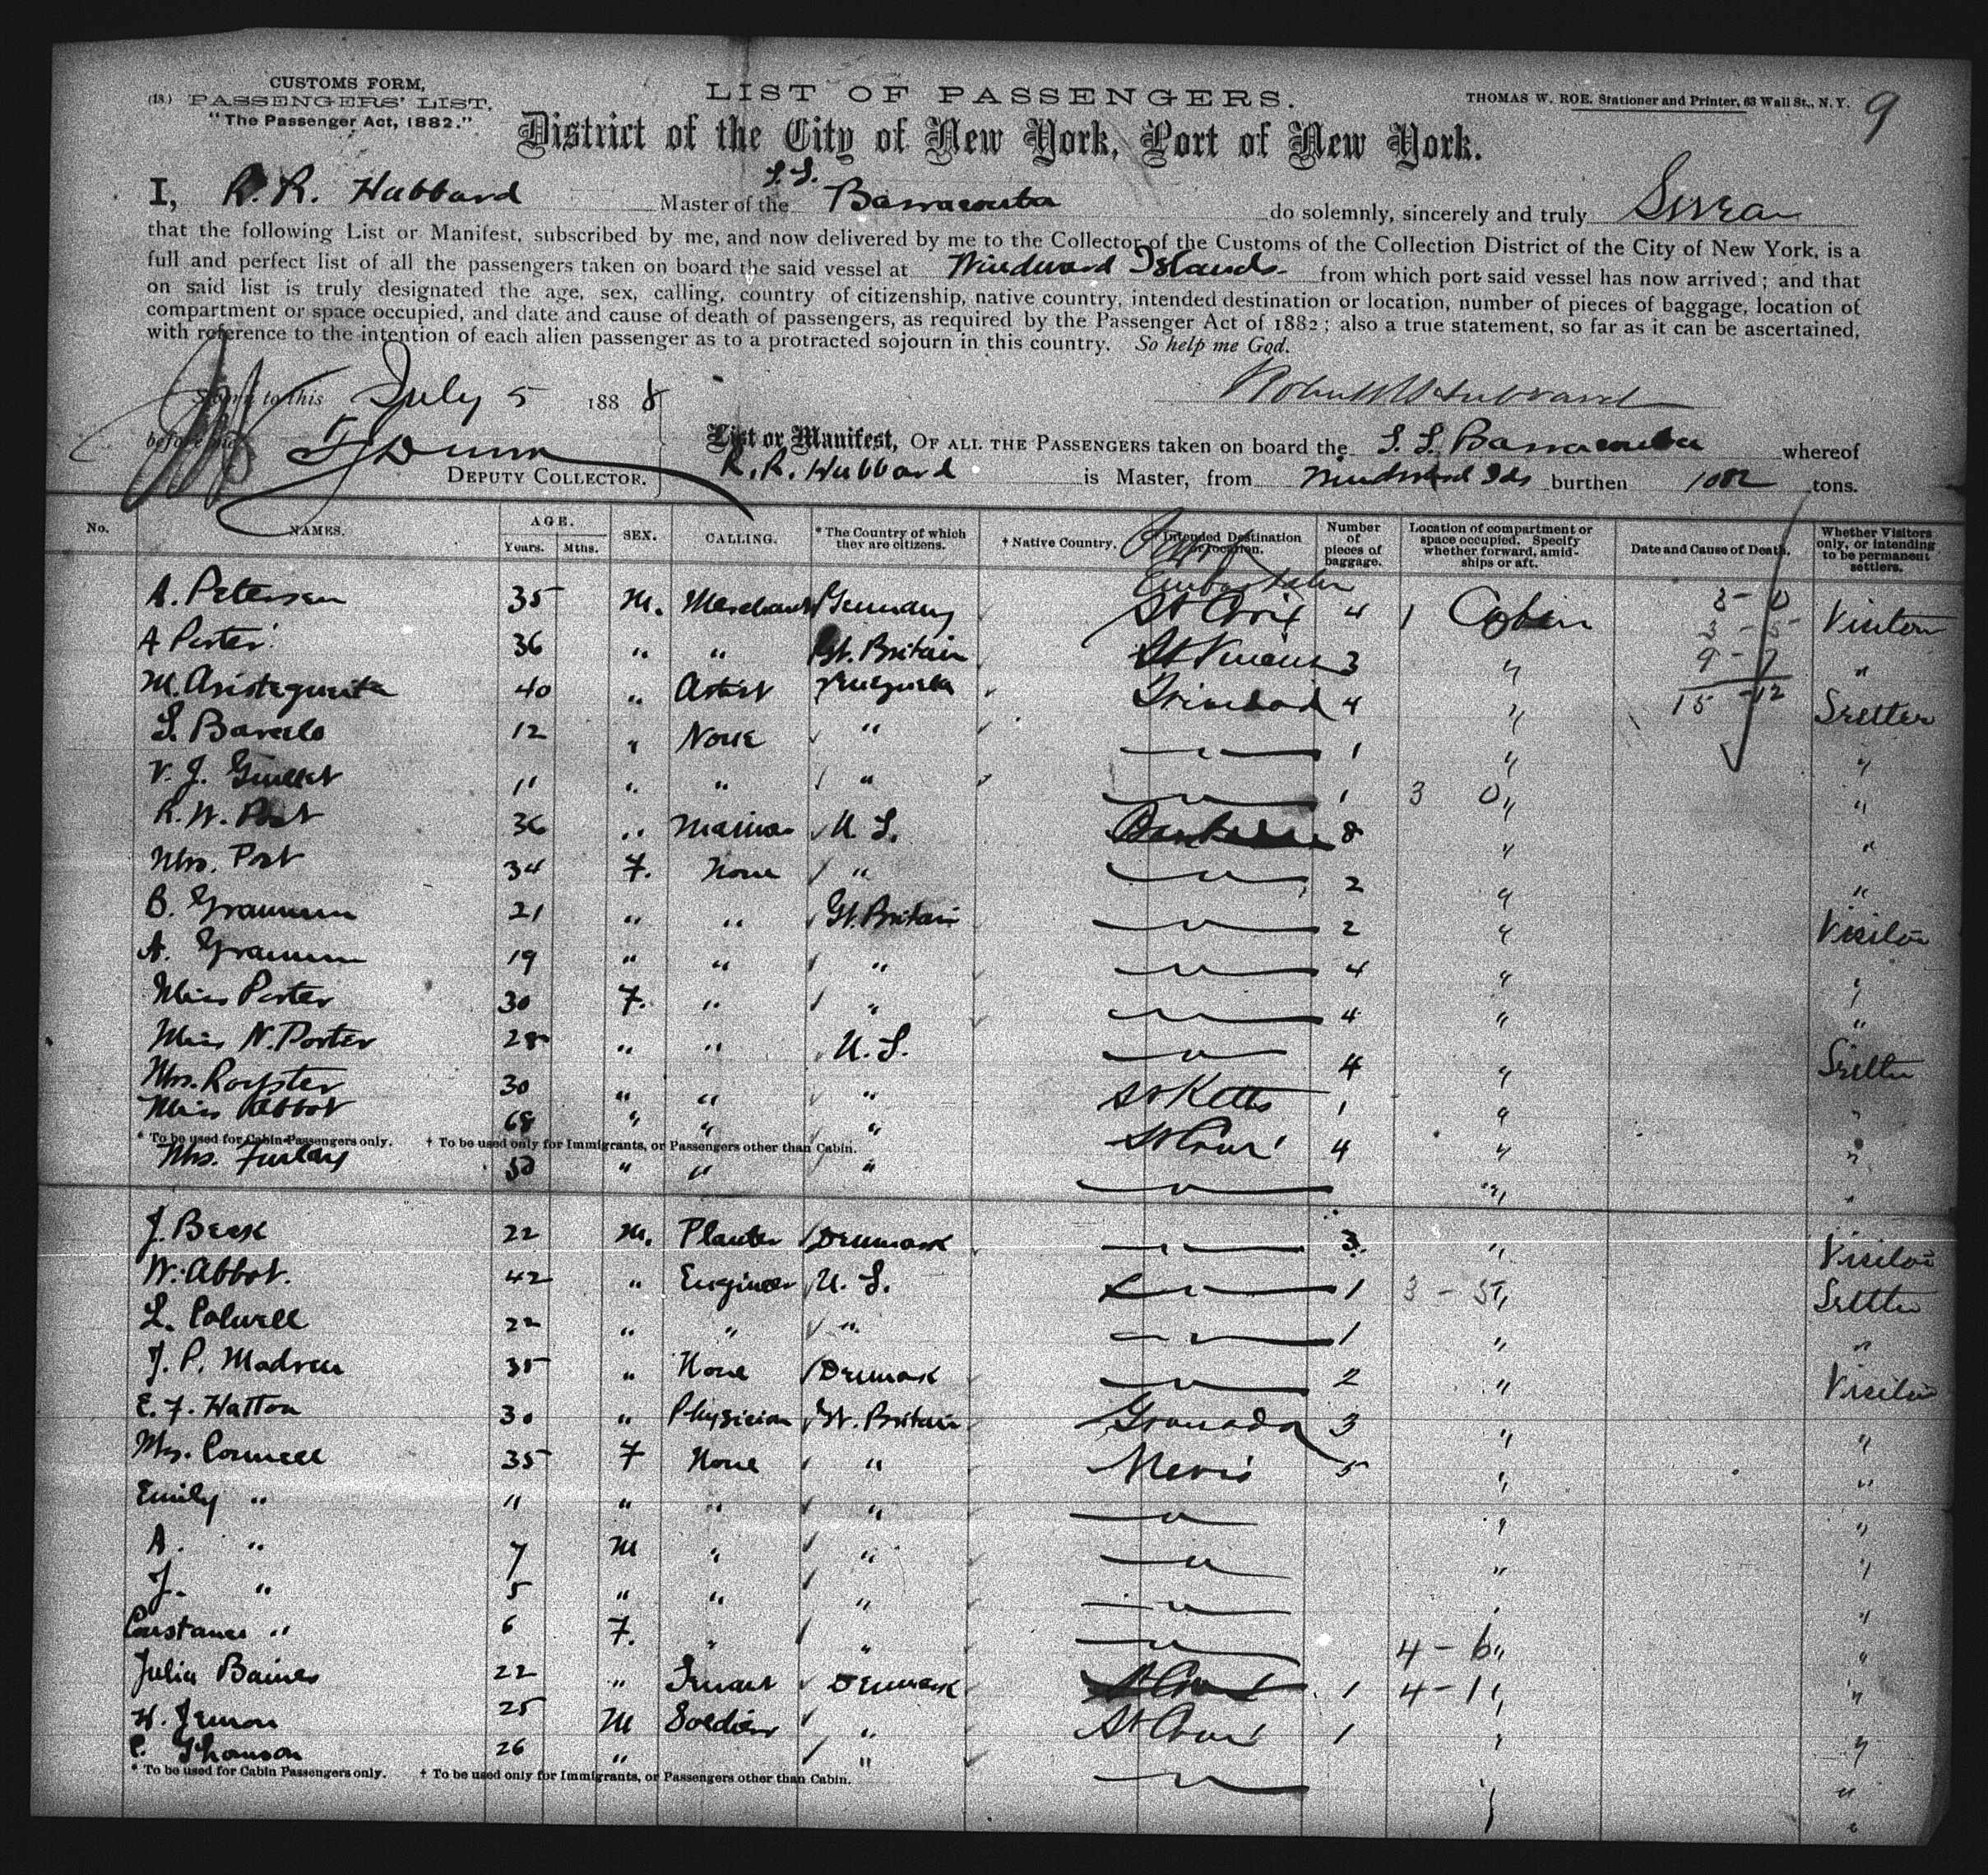 CUSTOMS FORM,
(18.) PASSENGERS' LIST.
"The Passenger Act, 1882."
LIST OF PASSENGERS.
THOMAS W. ROE, Stationer and Printer, 63 Wall St., N. Y.
9
District of the City of New York, Port of New York.
I, R. R. Hubbard Master of the S.S. Barracouta do solemnly, sincerely and truly Swear
that the following List or Manifest, subscribed by me, and now delivered by me to the Collector of the Customs of the Collection District of the City of New York, is a
full and perfect list of all the passengers taken on board the said vessel at Windward Islands from which port said vessel has now arrived; and that
on said list is truly designated the age, sex, calling, country of citizenship, native country, intended destination or location, number of pieces of baggage, location of
compartment or space occupied, and date and cause of death of passengers, as required by the Passenger Act of 1882; also a true statement, so far as it can be ascertained,
with reference to the intention of each alien passenger as to a protracted sojourn in this country. So help me God.
Sworn to this July 5 1888
before me
DEPUTY COLLECTOR.
List or Manifest, OF ALL THE PASSENGERS taken on board the S.S. Barracouta whereof
R. R. Hubbard is Master, from Windward Ids burthen tons.
No. NAMES. AGE. Years. Mths. SEX. CALLING. * The Country of which they are citizens. † Native Country. Intended Destination or location. Number of pieces of baggage. Location of compartment or space occupied. Specify whether forward, amidships or aft. Date and Cause of Death. Whether Visitors only, or intending to be permanent settlers.
A. Petersen 35 M. Merchant Germany St Croix 4 1 Cabin 3-0 Visitor
A Porter 36 " " Gt. Britain 3 " 3-5 "
M. Aristeguieta 40 " Artist Trinidad 4 " 9-7 Settler
15-12
S. Barcelo 12 " None " " 1 " "
V. J. 11 " " " " 1 3 0 " "
R. W. Post 36 " U. S. 8 " "
Mrs. Post 34 F. None " " 2 " "
B. 21 " " Gt. Britain " 2 " Visitor
A. 19 " " " " 4 " "
Miss Porter 30 F. " " " 4 " "
Miss N. Porter 28 " " U. S. " 4 " Settler
Mrs. Royster 30 " " " St Kitts 1 " "
Miss Abbot 68 " " " St Croix 4 " "
* To be used for Cabin Passengers only. † To be used only for Immigrants, or Passengers other than Cabin.
Mrs. Furlay 50 " " " " " "
J. Beck 22 M. Planter Denmark " 3 " Visitor
W. Abbot. 42 " Engineer U. S. " 1 3-5 " Settler
L. Colwell 22 " " " " 1 " "
J. P. Madsen 35 " None Denmark " 2 " Visitor
E. F. Hatton 30 " Physician Gt. Britain Granada 3 " "
Mrs. Connell 35 F None " Nevis 5 " "
Emily " 11 " " " " " "
A. " 7 M " " " " "
J. " 5 " " " " " "
Constance " 6 F. " " " 4-6 " "
Julia Baines 22 " Servant Denmark 1 4-1 " "
H. 25 M Soldier " St Croix 1 " "
26 " " " " "
* To be used for Cabin Passengers only. † To be used only for Immigrants, or Passengers other than Cabin.